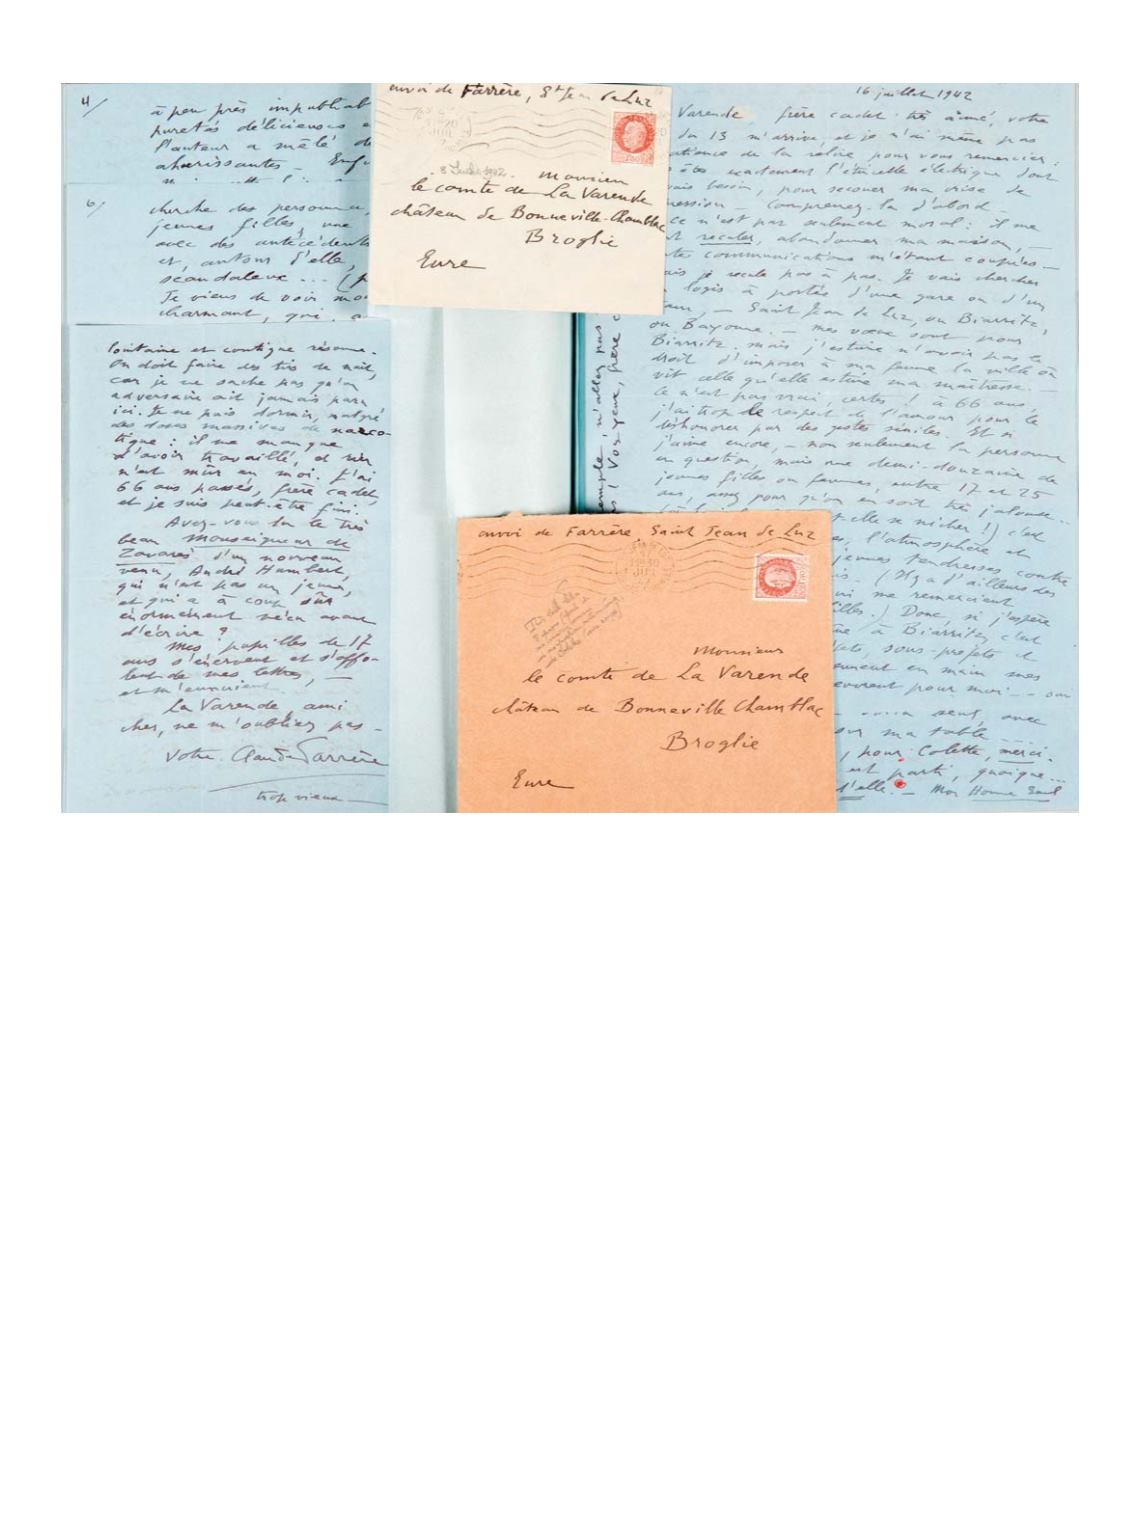 4/
à peu près impubliab
puretés délicieuses e
l'auteur a mêlé de
ahurissantes - Enfi
6/
cherche des personnes,
jeunes filles, une
avec des antécédents
et, autour d'elle,
scandaleux ... (p
Je viens de voir mo
charmant, qui, a
lointaine et contigue résonne.
On doit faire des tirs de nuit,
car je ne sache pas qu'un
adversaire ait jamais paru
ici. Je ne puis dormir, malgré
des doses massives de narco-
tique : il me manque
d'avoir travaillé, et rien
n'est mûr en moi. J'ai
66 ans passés, frère cadet,
et je suis peut-être fini.
Avez-vous lu le très
beau Monseigneur de
Zavarès d'un nouveau
venu, André Humbert,
qui n'est pas un jeune,
et qui a à coup sûr
énormément vécu avant
d'écrire ?
Mes pupilles de 17
ans s'énervent et s'affo-
lent de mes lettres, —
et m'ennuient.
La Varende, ami
cher, ne m'oubliez pas -
Votre Claude Farrère
trop vieux —
envoi de Farrère, St Jean de Luz
8 Juillet 1942.
Monsieur
le comte de La Varende
château de Bonneville-Chamblac
Broglie
Eure
16 juillet 1942
Varende, frère cadet très aimé, votre
du 13 m'arrive, et je n'ai même pas
patience de la relire, pour vous remercier :
êtes exactement l'étincelle électrique dont
vais besoin, pour secouer ma crise de
pression - Comprenez-la d'abord -
Ce n'est pas seulement moral : il me
t reculer, abandonner ma maison, —
tes communications m'étant coupées —
ais je recule pas à pas. Je vais chercher
logis à portée d'une gare ou d'un
tram, — Saint Jean de Luz, ou Biarritz,
ou Bayonne. — Mes vœux sont pour
Biarritz. mais j'estime n'avoir pas le
droit d'imposer à ma femme la ville où
vit celle qu'elle estime ma maîtresse. —
Ce n'est pas vrai, certes ! à 66 ans,
j'ai trop le respect de l'amour pour le
déshonorer par des gestes séniles. Et si
j'aime encore, — non seulement la personne
en question, mais une demi-douzaine de
jeunes filles ou femmes, entre 17 et 25
ans, assez pour qu'on en soit très jalouse...
t-elle se nicher !) c'est
s, l'atmosphère et
jeunes tendresses contre
is. (Il y a d'ailleurs des
ui me remercient
illes.) Donc, si j'espère
à Biarritz, c'est
jets, sous-projets et
ennent en main mes
euvrent pour moi ...
seul, avec
sur ma table
, pour Colette, merci.
est parti, quoique ...
d'elle. — Mon Homme Seul
emple, n'allez pas
Vos yeux, frère c
envoi de Farrère, Saint Jean de Luz
Monsieur
le comte de La Varende
château de Bonneville Chamblac
Broglie
Eure